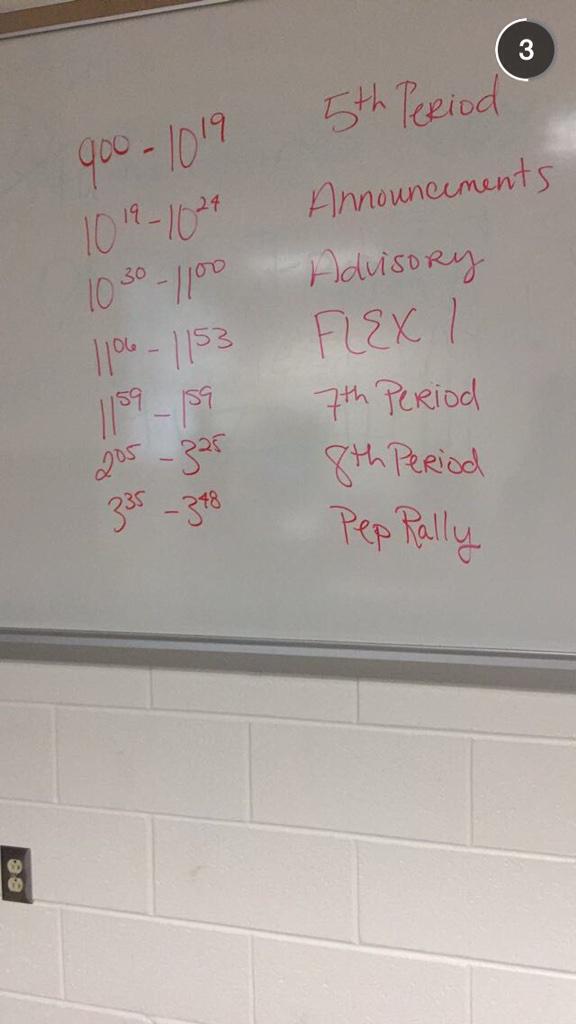 3
900 - 10 19 5th Period
10 19 - 10 24 Announcements
10 30 - 11 00 Advisory
11 06 - 11 53 FLEX 1
11 59 - 1 59 7th Period
2 05 - 3 25 8th Period
3 35 - 3 48 Pep Rally